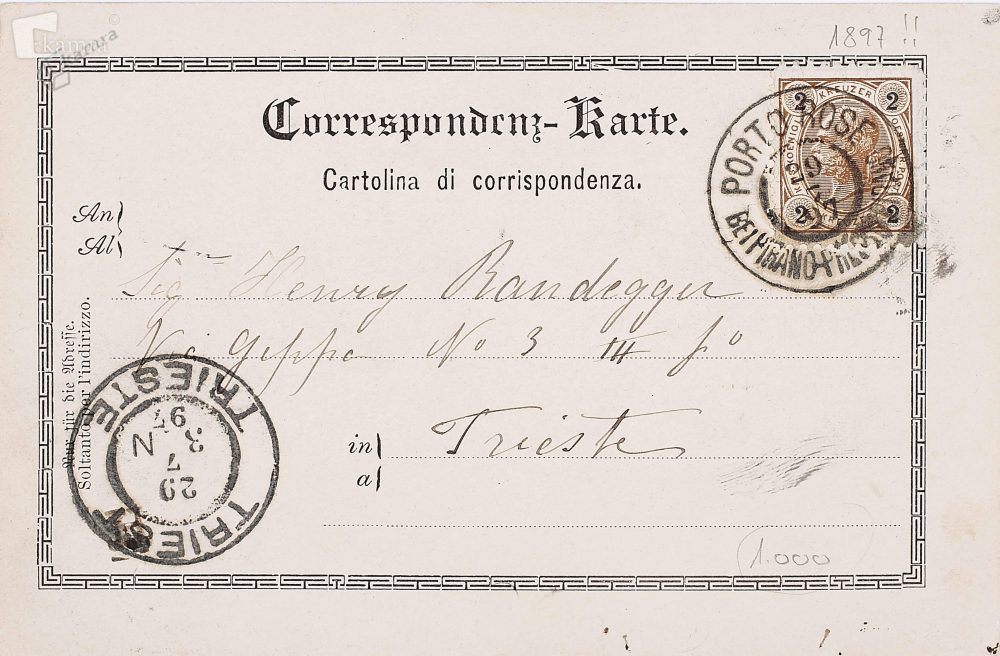 kamra
kamra
1897 !!
Correspondenz-Karte.
Cartolina di corrispondenza.
2 KREUZER 2
2 2
PORTO ROSE
BEI PIRANO
An
Al
Sigr Henry Randegger
Via Geppa No 3 III po
in Trieste
a
Nur für die Adresse.
Soltanto per l'indirizzo.
TRIEST
29
7
3 N
97
TRIESTE
1.000